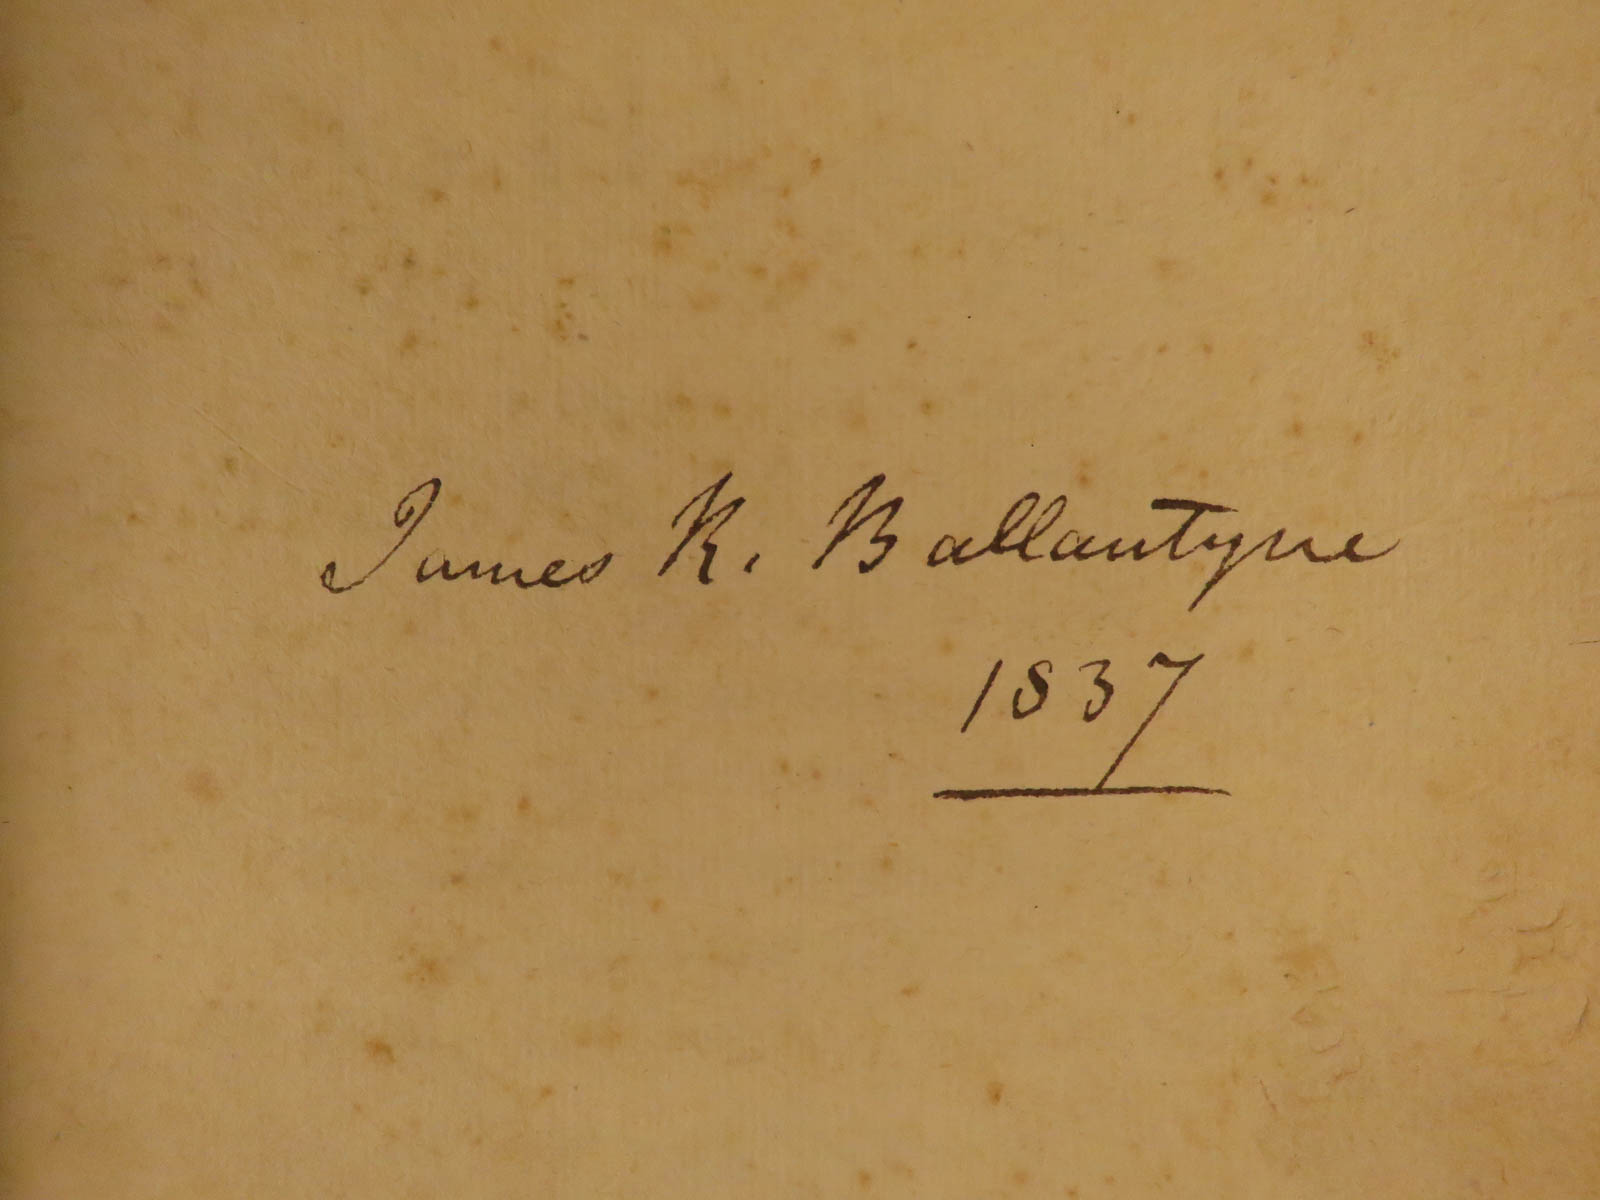 James R. Ballantyne
1837